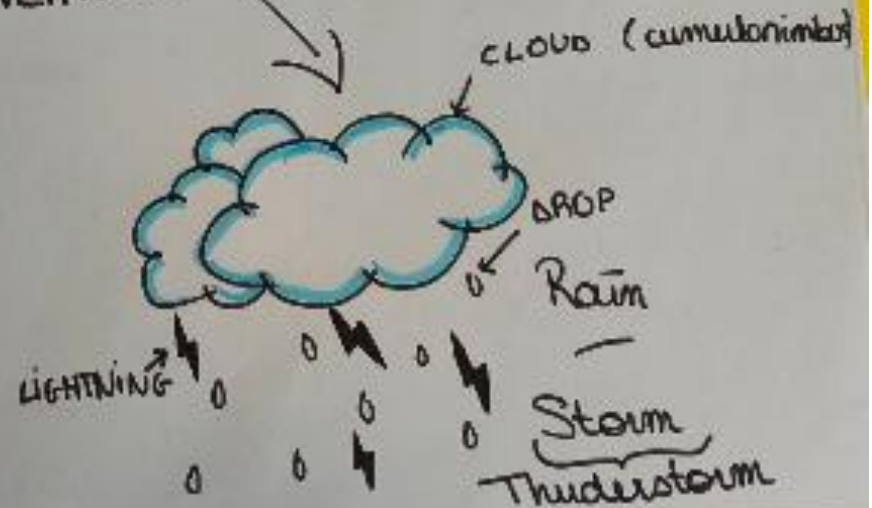 CLOUD (cumulonimbus)
DROP
Rain
LIGHTNING
Storm
Thuderstorm